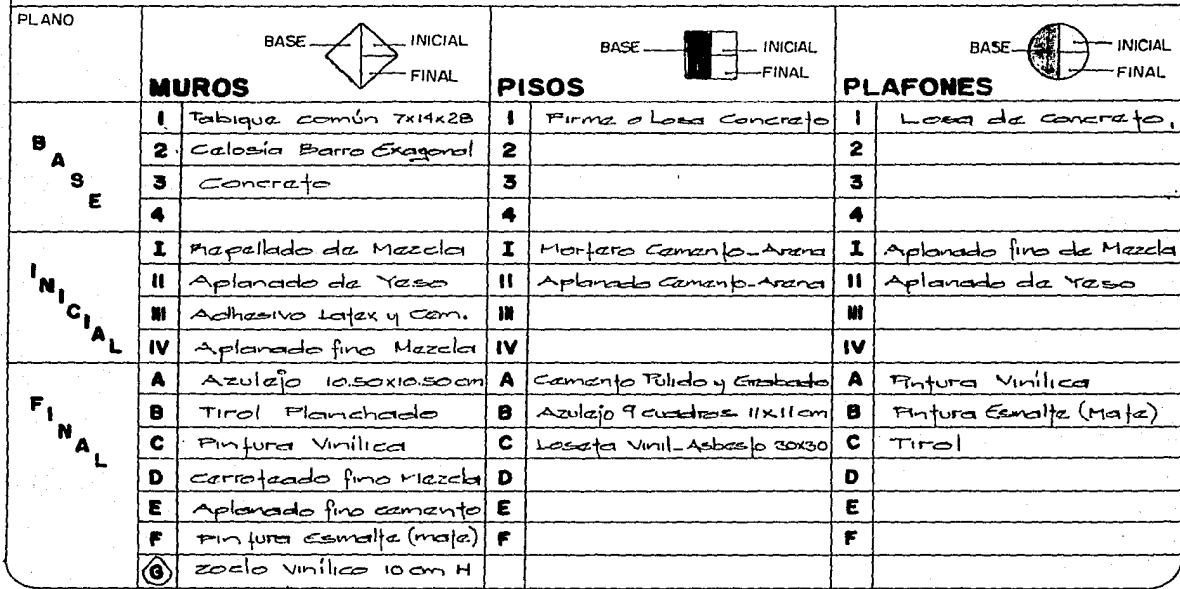 PLANO
BASE INICIAL BASE INICIAL BASE INICIAL
FINAL FINAL FINAL
MUROS PISOS PLAFONES
BASE
1 Tabique común 7x14x28 1 Firme o Losa Concreto 1 Losa de concreto,
2 Celosía Barro Exagonal 2 2
3 Concreto 3 3
4 4 4
INICIAL
I Repellado de Mezcla I Mortero Cemento-Arena I Aplanado fino de Mezcla
II Aplanado de Yeso II Aplanado Cemento-Arena II Aplanado de Yeso
III Adhesivo Latex y Cem. III III
IV Aplanado fino Mezcla IV IV
FINAL
A Azulejo 10.50x10.50 cm A Cemento Pulido y Grabado A Pintura Vinílica
B Tirol Planchado B Azulejo 9 cuadros 11x11 cm B Pintura Esmalte (Mate)
C Pintura Vinílica C Loseta Vinil-Asbesto 30x30 C Tirol
D Cerroteado fino Mezcla D D
E Aplanado fino cemento E E
F Pintura Esmalte (mate) F F
G Zoclo Vinílico 10 cm H